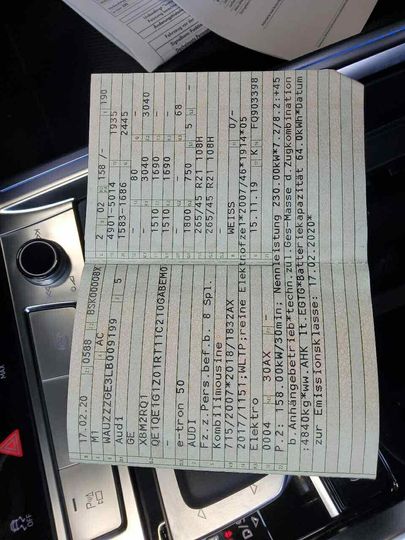 17.02.20 0588 BSK00008X 2 02 158 /- 190
M1 AC 4901-5014 1935
WAUZZZGE3LB009199 1583-1686 2445
Audi 5 -
GE - 80 -
XBM2RQ1 - 3040 - 3040
QE1QE1G1Z01RT11C210GABEM0 1510 1690 -
- 1510 1690 -
e-tron 50 - - -
AUDI 1800 750 5 68
Fz.z.Pers.bef.b. 8 Spl. 265/45 R21 108H
Kombilimousine 265/45 R21 108H
715/2007*2018/1832AX WEISS 0/-
2017/1151;WLTP;reine Elektrofze1*2007/46*1914*05
Elektro 15.11.19 K FQ903398
0004 30AX -
P.2: 158.00kW/30min; Nennleistung 230.00kW*7.2/8.2:+45
b.Anhängebetrieb*techn.zul.Ges-Masse d.Zugkombination
:3840kg*ww.AHK lt.EGTG*Batteriekapazität 64.0kWh*Datum
zur Emissionsklasse: 17.02.2020*
OFF
MAX